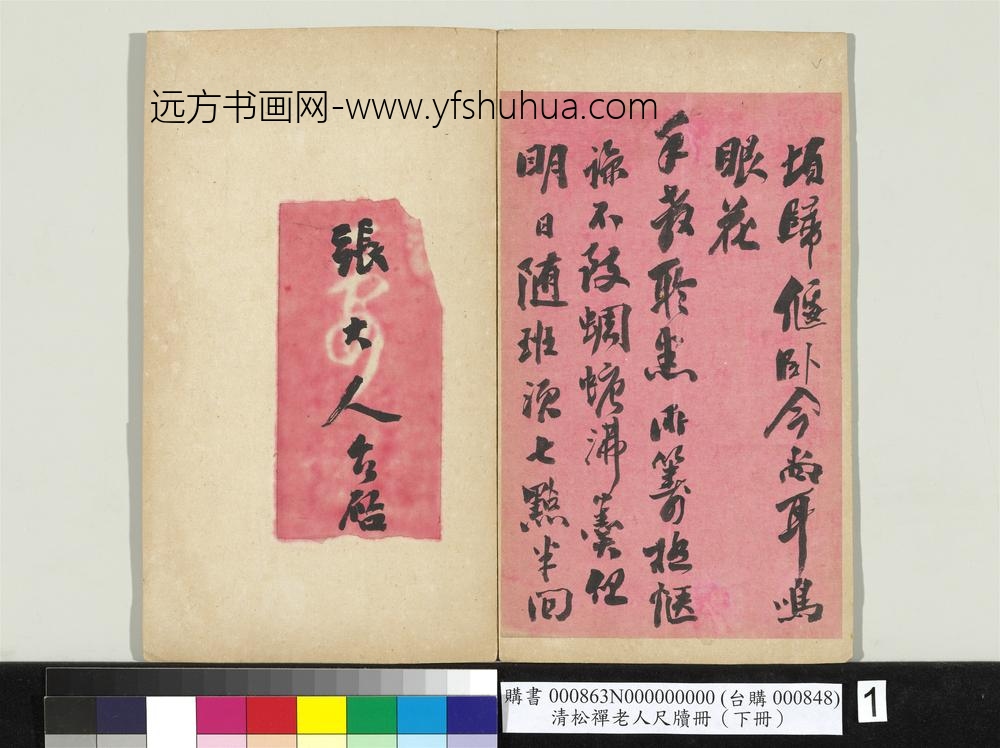 远方书画网-www.yfshuhua.com
頃歸偃卧今尚耳鳴
眼花
手教聆悉所籌極愜
諒不致蜩螗沸羹但
明日隨班須七點半回
張大人台啟
購書 000863N000000000 (台購 000848)
清松禪老人尺牘冊（下冊）
1